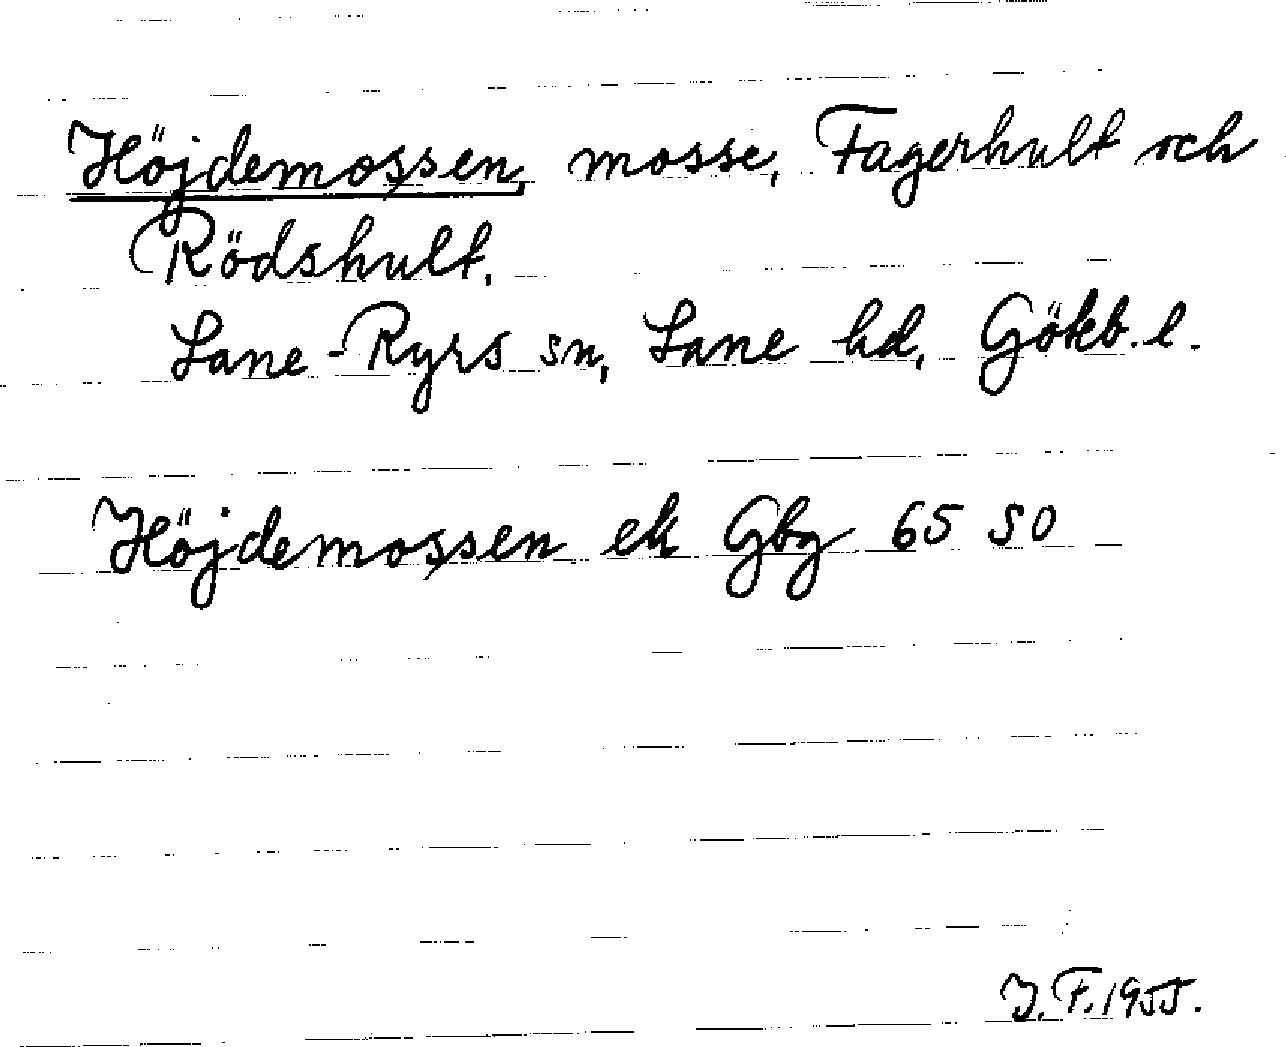 Höjdemossen, mosse, Fagerhult och
Rödshult.
Lane-Ryrs sn, Lane hd, Gökb. l.
Höjdemossen ek Gbg 65 50
J. F. 1955.